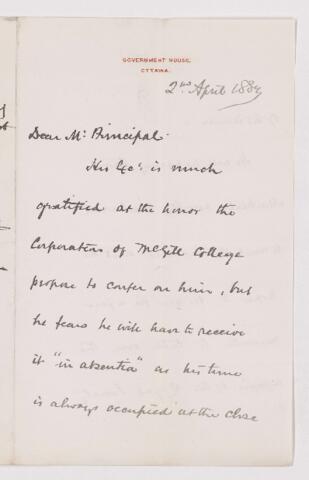 GOVERNMENT HOUSE,
OTTAWA.
2nd April 1884
Dear Mr Principal.
His Excy is much
gratified at the honor the
Corporation of McGill College
propose to confer on him, but
he fears he will have to receive
it "in absentia" as his time
is always occupied at the close